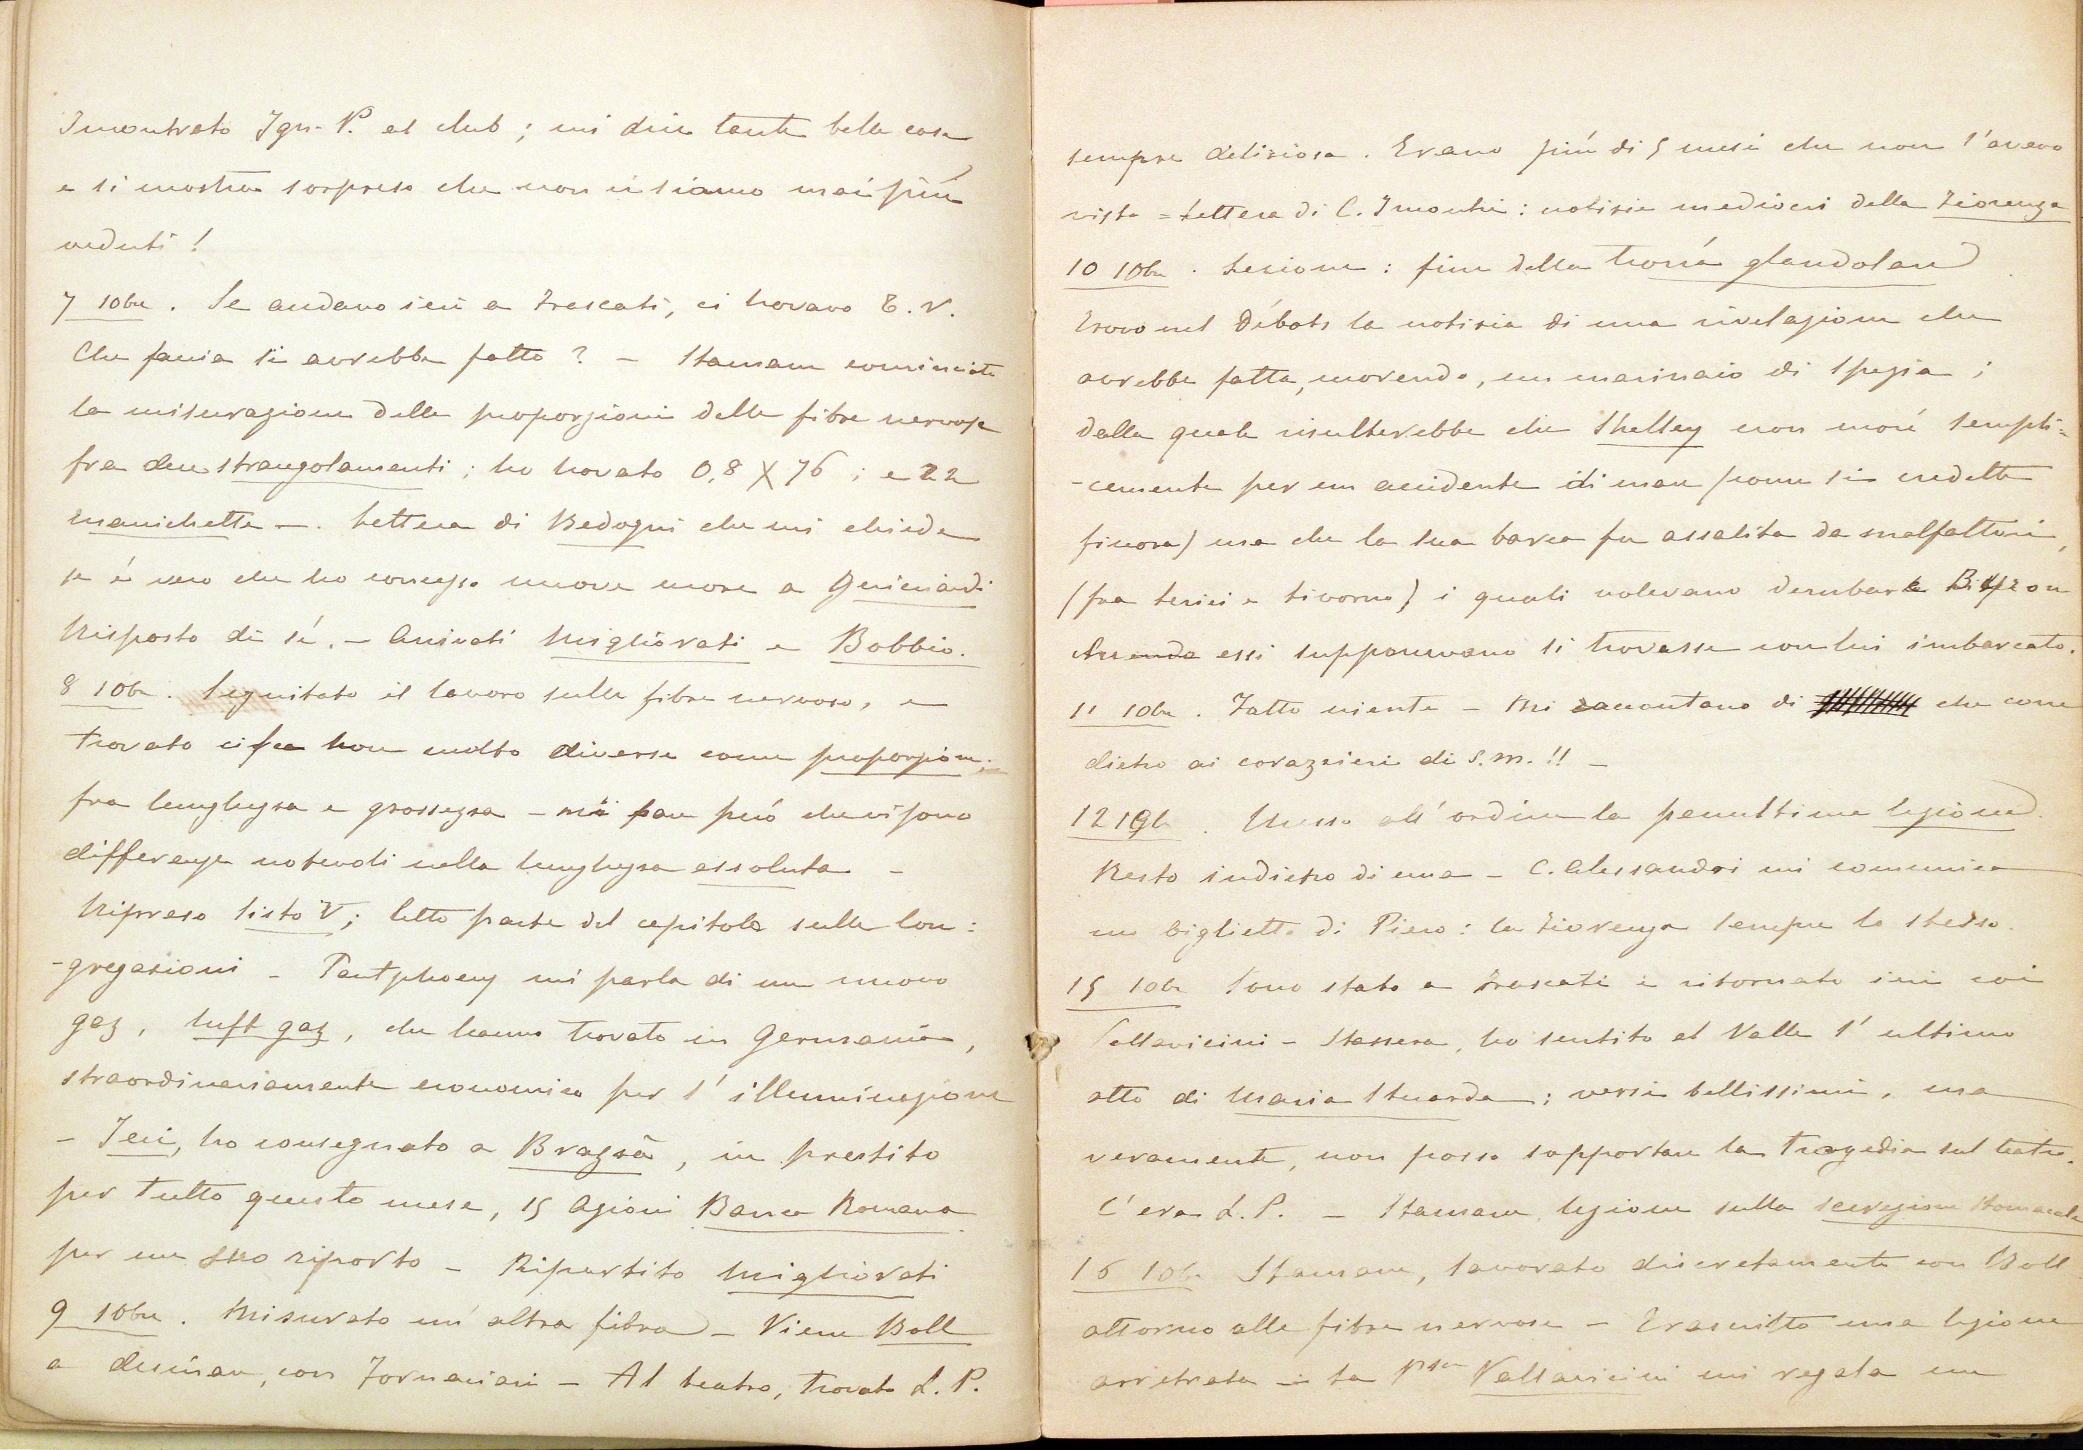 Incontrato Ign. P. al club ; mi dice tante belle cose
e si mostra sorpreso che non ci siamo mai più
veduti !
7 10bre . Se andavo ieri a Frascati, ci trovavo E. V.
Che faccia si avrebbe fatto ? – Stamane cominciata
la misurazione delle proporzioni delle fibre nervose
fra due strangolamenti ; ho trovato 0,8 X 76 ; e 22
manichette – . Lettera di Bedogni che mi chiede
se è vero che ho concesso nuove more a Guicciardi
Risposto di sì . – Arrivati Migliorati e Bobbio.
8 10bre . Seguitato il lavoro sulle fibre nervose, e
trovato cifre non molto diverse come proporzione
fra lunghezza e grossezza – mi pare però che vi sono
differenze notevoli nella lunghezza assoluta –
Ripreso Sisto V ; letto parte del capitolo sulle Con:
-gregazioni – Tautphoeus mi parla di un nuovo
gaz , luft gaz , che hanno trovato in Germania ,
straordinariamente economico per l' illuminazione
– Ieri, ho consegnato a Brazzà , in prestito
per tutto questo mese, 15 Azioni Banca Romana
per un suo riporto – Ripartito Migliorati
9 10bre . Misurato un' altra fibra – Viene Boll
a desinare, con Fornaciari – Al teatro, trovato L. P.
sempre deliziosa . Erano più di 5 mesi che non l'avevo
vista = Lettera di C. : notizie mediocri della Fiorenza
10 10bre . Lezione : fine della teoria glandolare
Trovo nel Débats la notizia di una rivelazione che
avrebbe fatta, morendo, un marinaio di Spezia ;
dalla quale risulterebbe che Shelley non morì sempli=
-cemente per un accidente di mare (come si credette
finora) ma che la sua barca fu assalita da malfattori,
(fra Lerici e Livorno) i quali volevano derubare Byron
che essi supponevano si trovasse con lui imbarcato.
11 10bre . Fatto niente – Mi raccontano di che corre
dietro ai corazzieri di S. M. !! –
12 10b . Messo all' ordine la penultima lezione.
Resto indietro di una – C. Alessandri mi comunica
un biglietto di Piero : la Fiorenza sempre lo stesso.
15 10bre Sono stato a Frascati e ritornato ieri coi
Pallavicini – Stassera, ho sentito al Valle l' ultimo
atto di Maria Stuarda ; versi bellissimi , ma
veramente, non posso sopportare la tragedia sul teatro.
C' era L. P. – Stamane, lezione sulla secrezione stomacale
16 10bre Stamane, lavorato discretamente con Boll
attorno alle fibre nervose – Trascritto una lezione
arretrata – La Pssa Pallavicini mi regala un